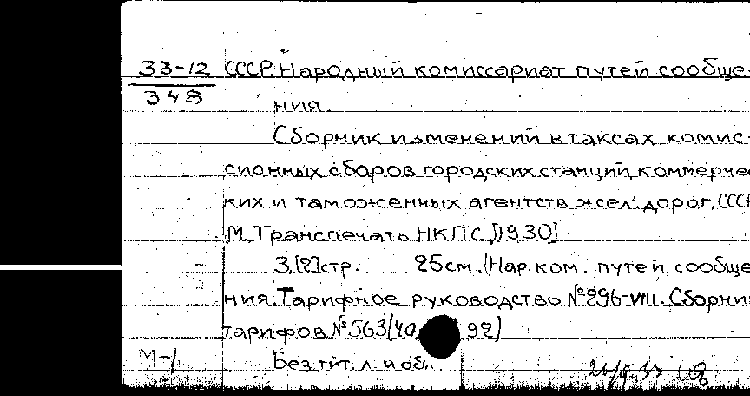 33-12 СССР. Народный комиссариат путей сообще-
348
ния.
Сборник изменений в таксах комис-
сионных сборов городских станций, коммерчес
ких и таможенных агентств жел. дорог. СССР
М. Транспечать НКПС, [1930]
3, [2] стр. 25 см. (Нар. ком. путей сообще
ния. Тарифное руководство № 896-VIII. Сборник
тарифов № 563/(40 99)
М-/ Без тит. л. и обл.